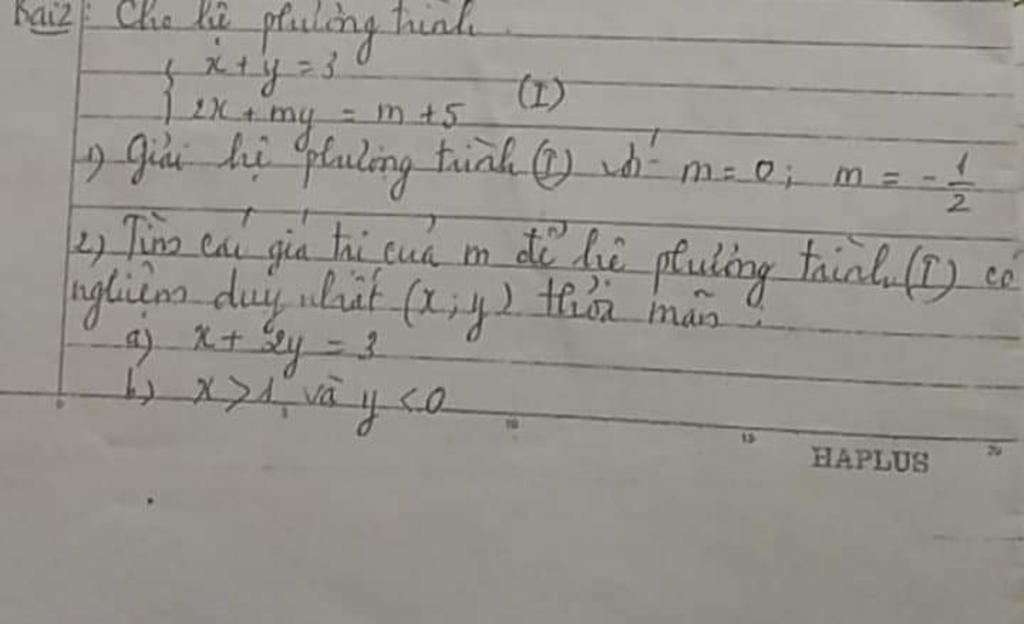 Bài 2: Cho hệ phương trình
{ x + y = 3
{ 2x + my = m + 5 (I)
1) Giải hệ phương trình (I) với m = 0; m = -1/2
2) Tìm các giá trị của m để hệ phương trình (I) có
nghiệm duy nhất (x; y) thỏa mãn:
a) x + 2y = 3
b) x > 1 và y < 0
0 5 10 15 20
HAPLUS